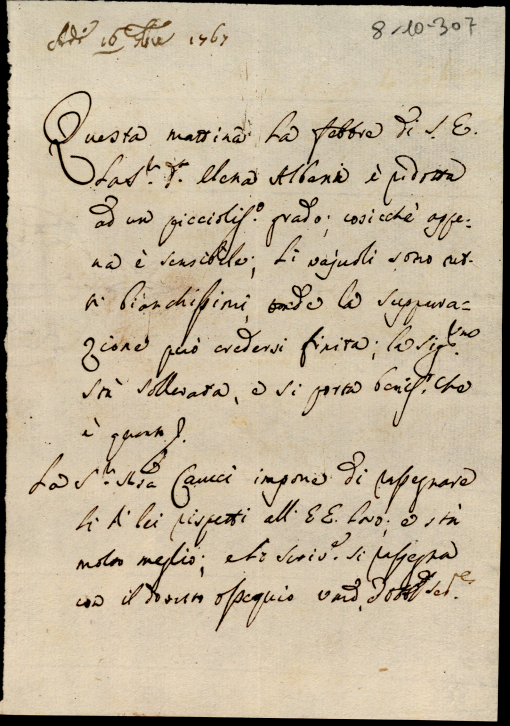 8-10-307
Adì 16 1767
Questa mattina la febbre di S. E.
la Sig.ra D. Elena Albani è ridotta
ad un picciolis.o grado; cosicchè appe-
na è sensibile; li vajuoli sono tut-
ti bianchissimi, onde la suppura-
zione può credersi finita; la Sig.
stà sollevata, e si porta benis. che
è quanto
La S.ra Caucci impone di rassegnare
li di lei rispetti all' E E. Loro; e stà
molto meglio; e lo scriv.e si rassegna
con il dovuto ossequio